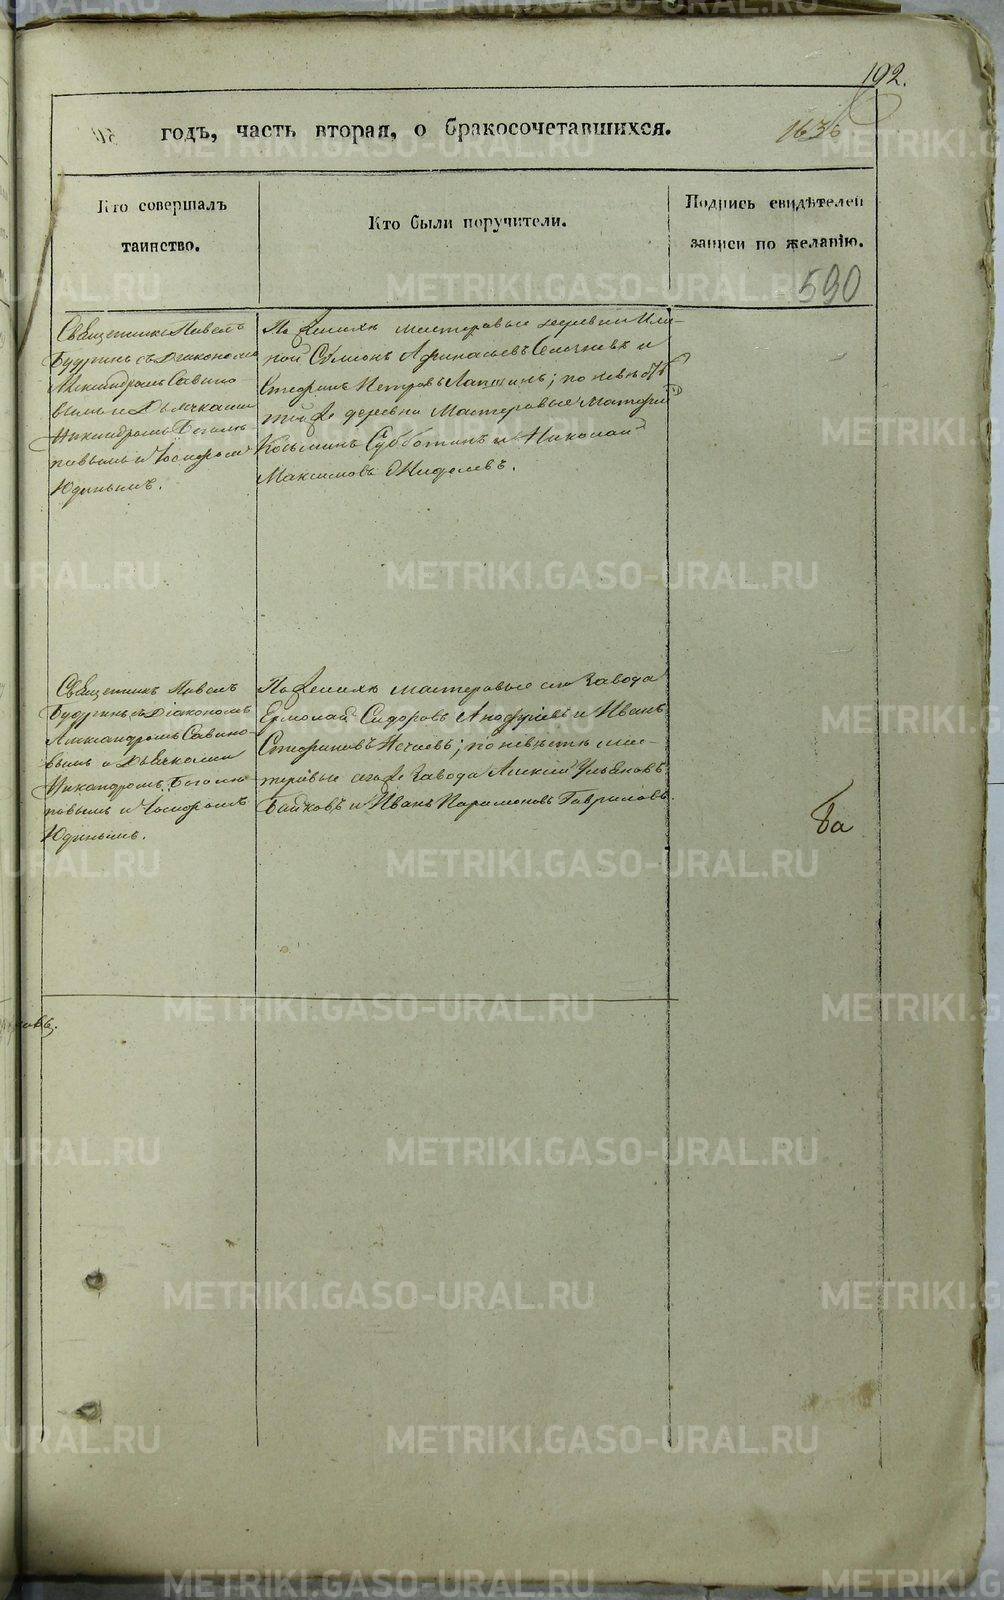 192.
годъ, часть вторая, о бракосочетавшихся.
Кто совершалъ
таинство.
Кто были поручители.
Подпись свидѣтелей
записи по желанію.
590
Священникъ Павелъ
Будринъ съ Діакономъ
Александромъ Савино-
вымъ и Дьячками
Никандромъ Боголю-
повымъ и Іосифомъ
Юдинымъ.
По женихѣ мастеровые деревни
Семенъ Афанасьевъ и
Стефанъ Петровъ Лапшинъ; по невѣстѣ
той же деревни Мастеровые
Козьминъ Субботинъ и Николай
Максимовъ
Священникъ Павелъ
Будринъ съ Діакономъ
Александромъ Савино-
вымъ и Дьячками
Никандромъ Боголю-
повымъ и Іосифомъ
Юдинымъ.
По женихѣ мастеровые сего Завода
Ермолай Сидоровъ и Иванъ
Стефановъ Нечаевъ; по невѣстѣ мас-
теровые сего же Завода Алексей Ульяновъ
Байковъ и Иванъ Парамоновъ Гавриловъ.
METRIKI.GASO-URAL.RU